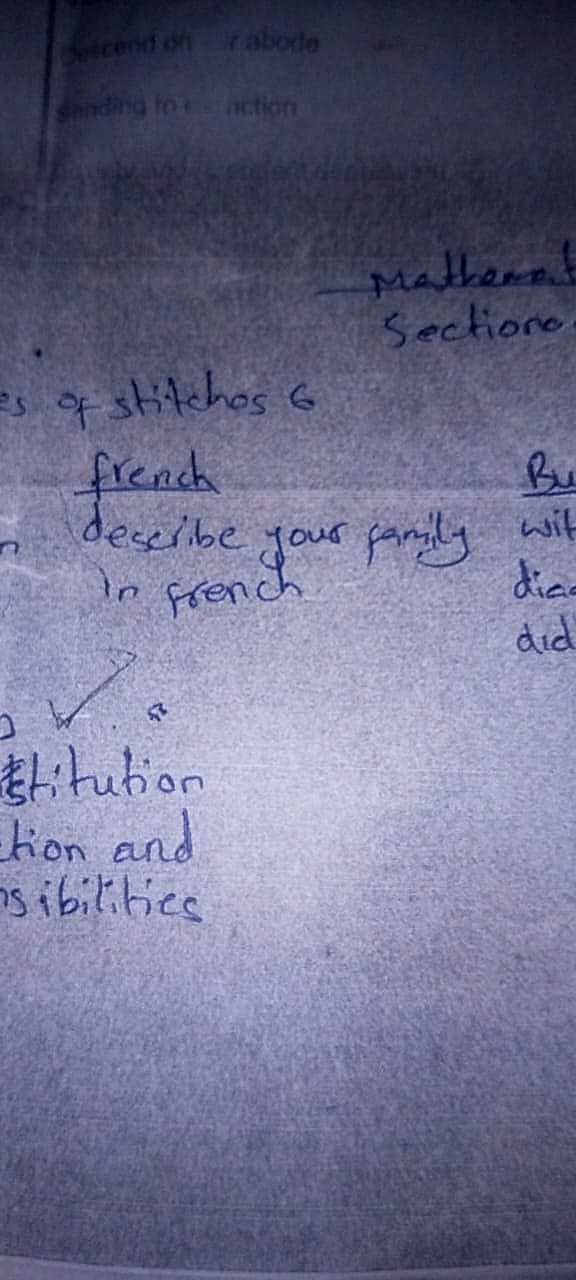 descend on r abode
nction
Mathemat
Section
es of stitches 6
french
Bu
describe your family
wit
n
in french
diag
did
stitution
ction and
nsibilities